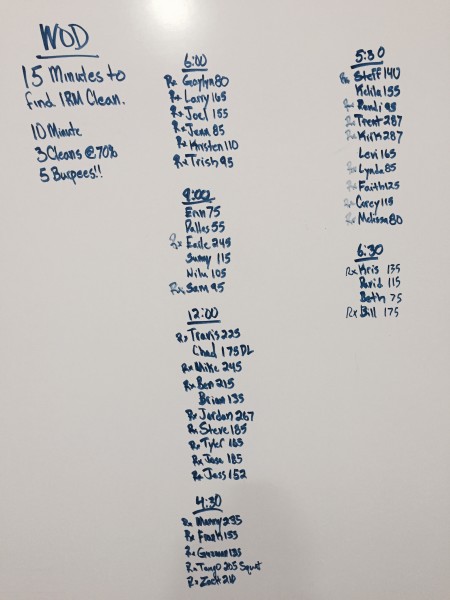 WOD
15 Minutes to
find 1RM Clean.
10 Minute
3 Cleans @ 70%
5 Burpees!!
6:00
Rx Gaylyn 80
Rx Larry 165
Rx Joel 155
Rx Jenn 85
Rx Kristen 110
Rx Trish 95
9:00
Erin 75
Dallas 55
Rx Earle 245
115
105
Rx Sam 95
12:00
Rx Travis 225
Chad 175 DL
Rx Mike 245
Rx Ben 215
Brian 135
Rx Jordan 267
Rx Steve 185
Rx Tyler 165
Rx Jose 185
Rx Jess 152
4:30
Rx Manny 235
Rx Frank 155
Rx 135
Rx Tango 205 Squat
Rx Zack 210
5:30
Rx Steff 140
155
Rx Randi 95
Rx Trent 287
Rx Kirk 287
Levi 165
Rx Lynda 85
Rx Faith 125
Rx Corey 115
Rx Melissa 80
6:30
Rx Kris 135
David 115
Beth 75
Rx Bill 175